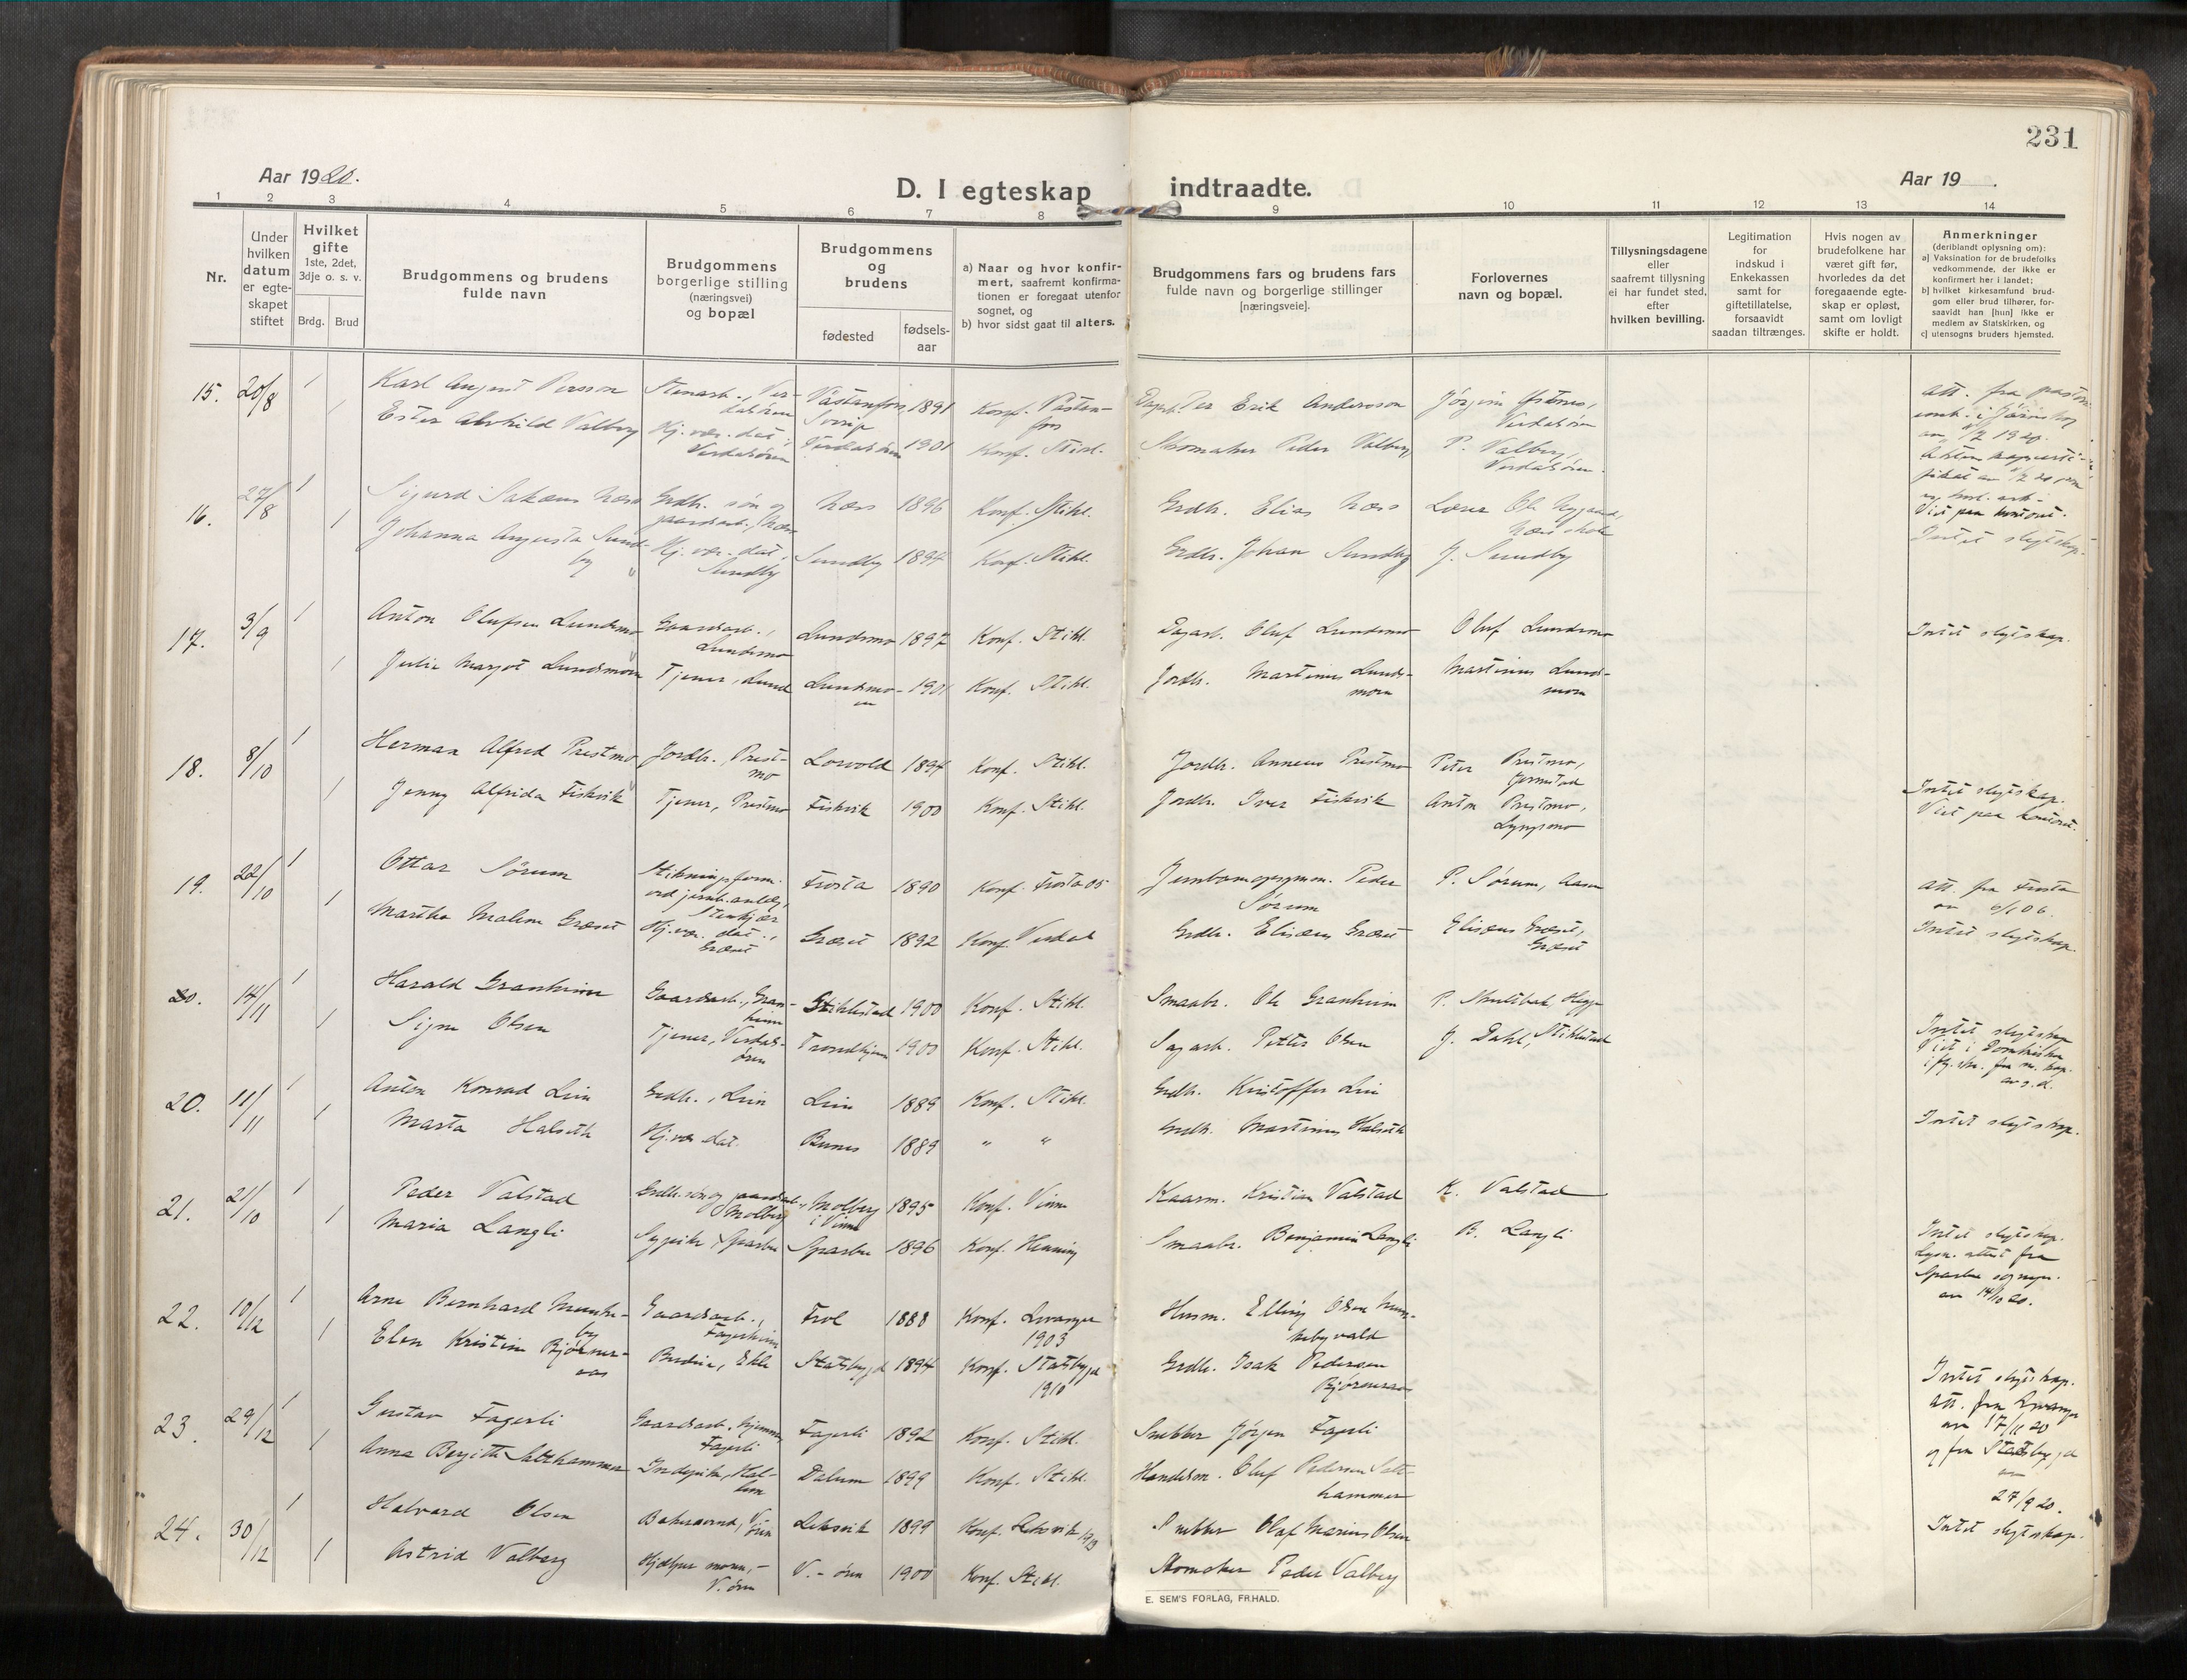 231
Aar 1920.
D. I egteskap indtraadte.
Aar 19 .
1 2 3 4 5 6 7 8 9 10 11 12 13 14
Nr.
Under hvilken datum er egteskapet stiftet
Hvilket gifte
1ste, 2det, 3dje o. s. v.
Brdg. Brud
Brudgommens og brudens fulde navn
Brudgommens borgerlige stilling (næringsvei) og bopæl
Brudgommens og brudens
fødested
fødsels-aar
a) Naar og hvor konfirmert, saafremt konfirmationen er foregaat utenfor sognet, og
b) hvor sidst gaat til alters.
Brudgommens fars og brudens fars fulde navn og borgerlige stillinger [næringsveie].
Forlovernes navn og bopæl.
Tillysningsdagene eller saafremt tillysning ei har fundet sted, efter hvilken bevilling.
Legitimation for indskud i Enkekassen samt for giftetillatelse, forsaavidt saadan tiltrænges.
Hvis nogen av brudefolkene har været gift før, hvorledes da det foregaaende egteskap er opløst, samt om lovligt skifte er holdt.
Anmerkninger
(deriblandt oplysning om):
a] Vaksination for de brudefolks vedkommende, der ikke er konfirmert her i landet;
b] hvilket kirkesamfund brudgom eller brud tilhører, forsaavidt han [hun] ikke er medlem av Statskirken, og
c] utensogns bruders hjemsted.
15. 20/8 1 Karl August Persson Stenarb., Verdalsøren Västanfors Sverige 1891 Konf. Västanfors Erik Andersson Verdalsøren
1 Ester Alvhild Valberg Hj. vær. dat., Verdalsøren Verdalsøren 1901 Konf. Stikl. Skomaker Peder Valberg P. Valberg, Verdalsøren.
Viet paa kontoret.
16. 27/8 1 Sigurd Næss Grdbr. søn og gaardsarb., Næss Næss 1896 Konf. Stikl. Grdbr. Elias Næss
1 Johanna Augusta Sundby Hj. vær. dat., Sundby Sundby 1894 Konf. Stikl. Grdbr. Johan Sundby J. Sundby
Intet slegtskap.
17. 3/9 1 Anton Olufsen Lundsmo Gaardsarb., Lundsmo Lundsmo 1897 Konf. Stikl. Dagarb. Oluf Lundsmo Oluf Lundsmo Intet slegtskap.
1 Julie Margot Lundsmoen Tjener, Lund Lundsmoen 1901 Konf. Stikl. Jordbr. Martinus Lundsmoen Martinus Lundsmoen
18. 8/10 1 Herman Alfred Prestmo Jordbr., Prestmo Lorvold 1894 Konf. Stikl. Jordbr. Anneus Prestmo Peter Prestmo, Jermstad
1 Jenny Alfrida Fiskvik Tjener, Prestmo Fiskvik 1900 Konf. Stikl. Jordbr. Iver Fiskvik Anton Prestmo, Lyngsmo
Intet slegtskap.
Viet paa kontoret.
19. 22/10 1 Ottar Sørum Stikningsform. ved jernb.anlæg, Stenkjær Frosta 1890 Konf. Frosta 05 Peder Sørum P. Sørum, Aasen
1 Martha Malene Græset Hj. vær. dat., Græset Græset 1892 Konf. Verdal Grdbr. Elisæus Græset Elisæus Græset, Græset
Att. fra Frosta av 6/1 06.
Intet slegtskap.
20. 14/11 1 Harald Granheim Gaardsarb., Granheim Stiklestad 1900 Konf. Stikl. Smaabr. Ole Granheim
1 Signe Olsen Tjener, Verdalsøren Trondhjem 1900 Konf. Stikl. Sagarb. Petter Olsen J. Dahl, Stiklestad
Intet slegtskap
Viet i Domkirken
20. 11/11 1 Anton Konrad Lein Grdbr., Lein Lein 1889 Konf. Stikl. Grdbr. Kristoffer Lein
1 Marta Halseth Hj. vær. dat. Bunes 1889 " " Grdbr. Martinus Halseth
Intet slegtskap.
21. 21/10 1 Peder Valstad Grdbr. søn og gaardsarb., Molberg Molberg i Vinne 1895 Konf. Vinne Kaarm. Kristian Valstad K. Valstad
1 Maria Langli Sypike, Sparbu Sparbu 1896 Konf. Henning Smaabr. Benjamin Langli B. Langli
Intet slegtskap.
Lysn. attest fra Sparbu sogepr. av 14/10 20.
22. 10/12 1 Arne Bernhard Munkeby Gaardsarb., Fagerheim Frol 1888 Konf. Levanger 1903 Husm. Elling Olsen Munkebyvald
1 Elen Kristine Bjørneraas Budeie, Ekle Stadsbygd 1894 Konf. Stadsbygd 1910 Grdbr. Isak Pedersen Bjørneraas
Intet slegtskap.
Att. fra Levanger av 17/11 20
og fra Stadsbygd av 27/9 20.
23. 29/12 1 Gustav Fagerli Gaardsarb. hjemme, Fagerli Fagerli 1892 Konf. Stikl. Snekker Jørgen Fagerli
1 Anna Bergitte Salthammer Indepike, Hallem Dalum 1899 Konf. Stikl. Handelsm. Oluf Pedersen Salthammer
24. 30/12 1 Halvard Olsen Bakersvend, V.-øren Leksvik 1899 Konf. Leksvik 1913 Snekker Olaf Marius Olsen
1 Astrid Valberg Hjelper moren, V. øren V.-øren 1900 Konf. Stikl. Skomaker Peder Valberg
Intet slegtskap.
E. SEM'S FORLAG, FR.HALD.